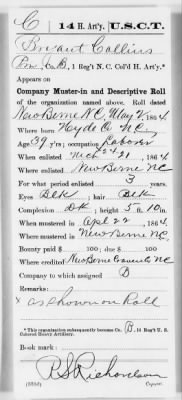 C | 14 H Art'y. | U.S.C.T.
Bryant Collins
Co. B, 1 Reg't N. C. Col'd H. Art'y.*
Appears on
Company Muster-in and Descriptive Roll
of the organization named above. Roll dated
New Berne N.C. May 2, 1864
Where born Hyde Co N.C.
Age 39 y'rs; occupation Laborer
When enlisted Mch 21, 1864
Where enlisted New Berne N.C.
For what period enlisted 3 years.
Eyes Blk; hair Blk
Complexion Dk; height 5 ft. 10 in.
When mustered in Apl 22, 1864
Where mustered in New Berne N.C.
Bounty paid $ 100; due $ 100
Where credited New Berne Craven Co N.C.
Company to which assigned B
Remarks:
as shown on Roll
*This organization subsequently became Co. B, 14 Reg't U. S.
Colored Heavy Artillery.
Book mark:
R S Richardson
Copyist.